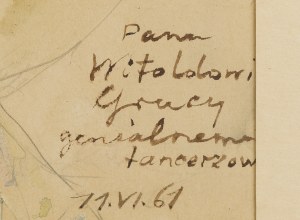 Panu
Witoldowi
Grucy
genialnemu
tancerzow
11.VI.61